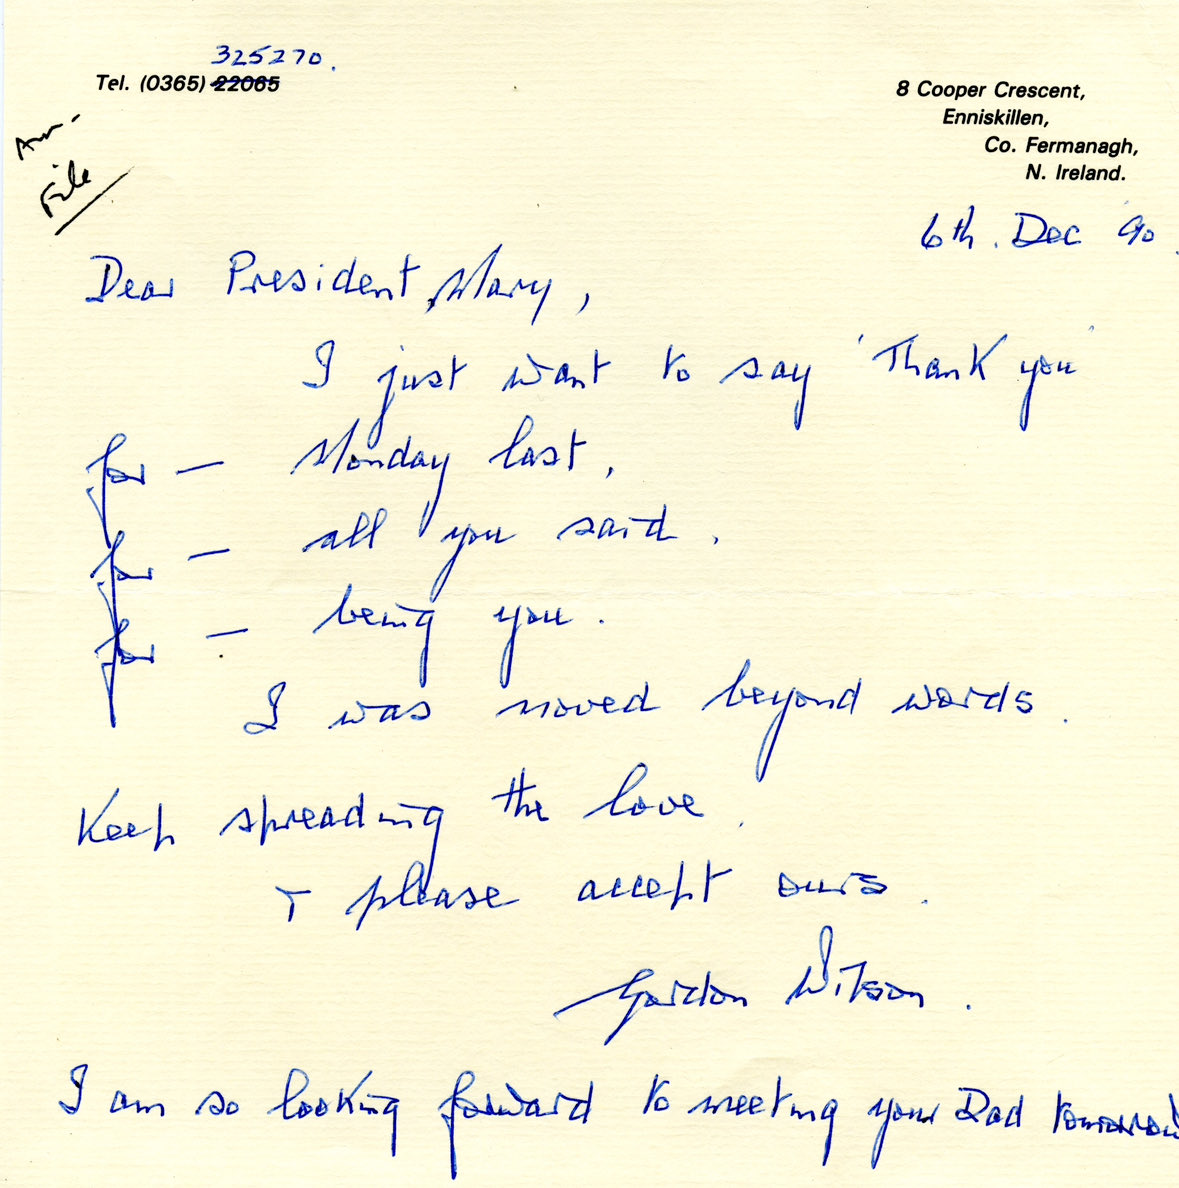 325270.
Tel. (0365) 22065
8 Cooper Crescent,
Enniskillen,
Co. Fermanagh,
N. Ireland.
File
6th. Dec '90.
Dear President Mary,
I just want to say 'Thank you'
for — Monday last,
for — all you said.
for — being you.
I was moved beyond words.
Keep spreading the love.
+ please accept ours.
Gordon Wilson.
I am so looking forward to meeting your Dad tomorrow